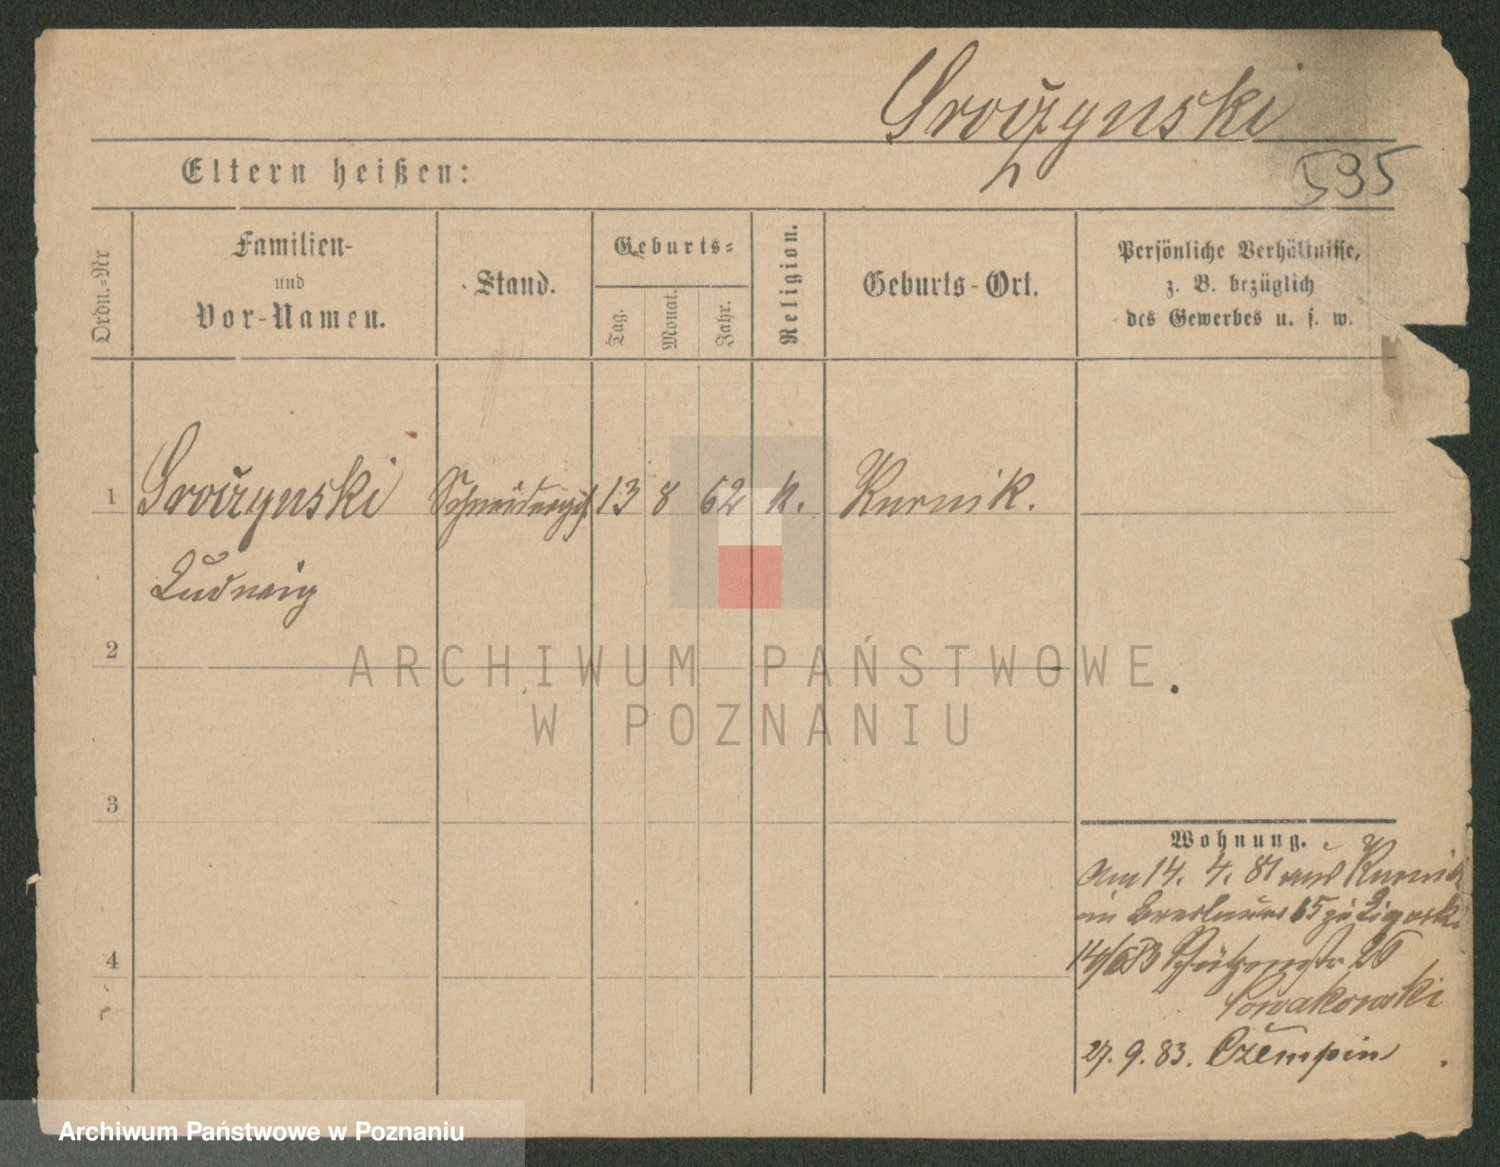 Groczynski
595
Eltern heißen:
Ordn.-Nr
Familien-
und
Vor-Namen.
Stand.
Geburts-
Tag.
Monat.
Jahr.
Religion.
Geburts-Ort.
Persönliche Verhältnisse,
z. B. bezüglich
des Gewerbes u. s. w.
1
13 8 62 k. Kurnik.
Ludwig
2
ARCHIWUM PAŃSTWOWE
W POZNANIU
3
Wohnung.
Am 14. 4. 81 aus Kurnik
65 zu
Schützenstr 26
Nowakowski
4
27. 9. 83. Czempin
Archiwum Państwowe w Poznaniu